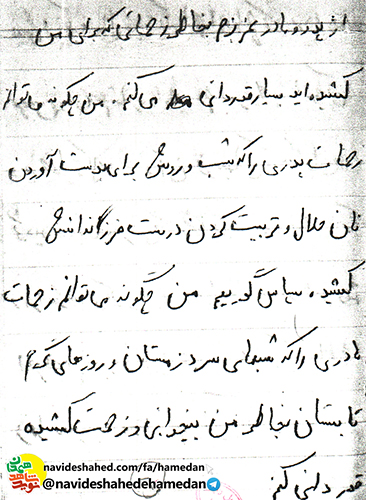 از پدر و مادر عزیزم بخاطر زحماتی که برای من
کشیده اید بسیار قدردانی می کنم. من چگونه می توانم
زحمات پدری را که شب و روزش برای بدست آوردن
نان حلال و تربیت کردن درست فرزندانش
کشیده سپاس گویم من چگونه می توانم زحمات
مادری را که شبهای سرد زمستان و روزهای گرم
تابستان بخاطر من بیخوابی و زحمت کشیده
قدردانی کنم
navideshahed.com/fa/hamedan
@navideshahedehamedan